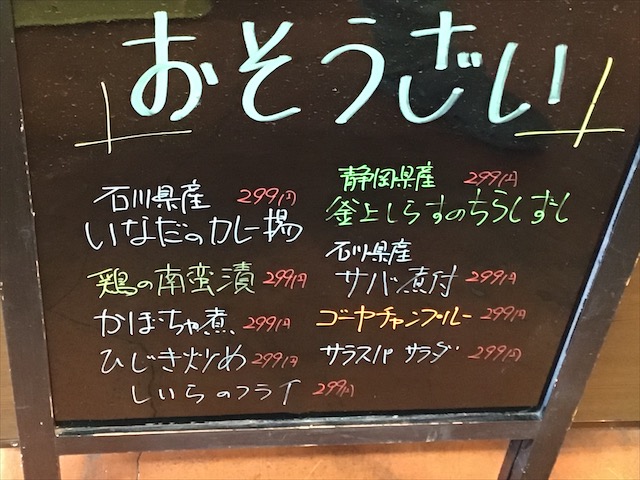 おそうざい
石川県産 299円
いなだのカレー揚
鶏の南蛮漬 299円
かぼちゃ煮 299円
ひじき炒め 299円
しいらのフライ 299円
静岡県産 299円
釜上しらすのちらしずし
石川県産
サバ煮付 299円
ゴーヤチャンプルー 299円
サラスパサラダ 299円